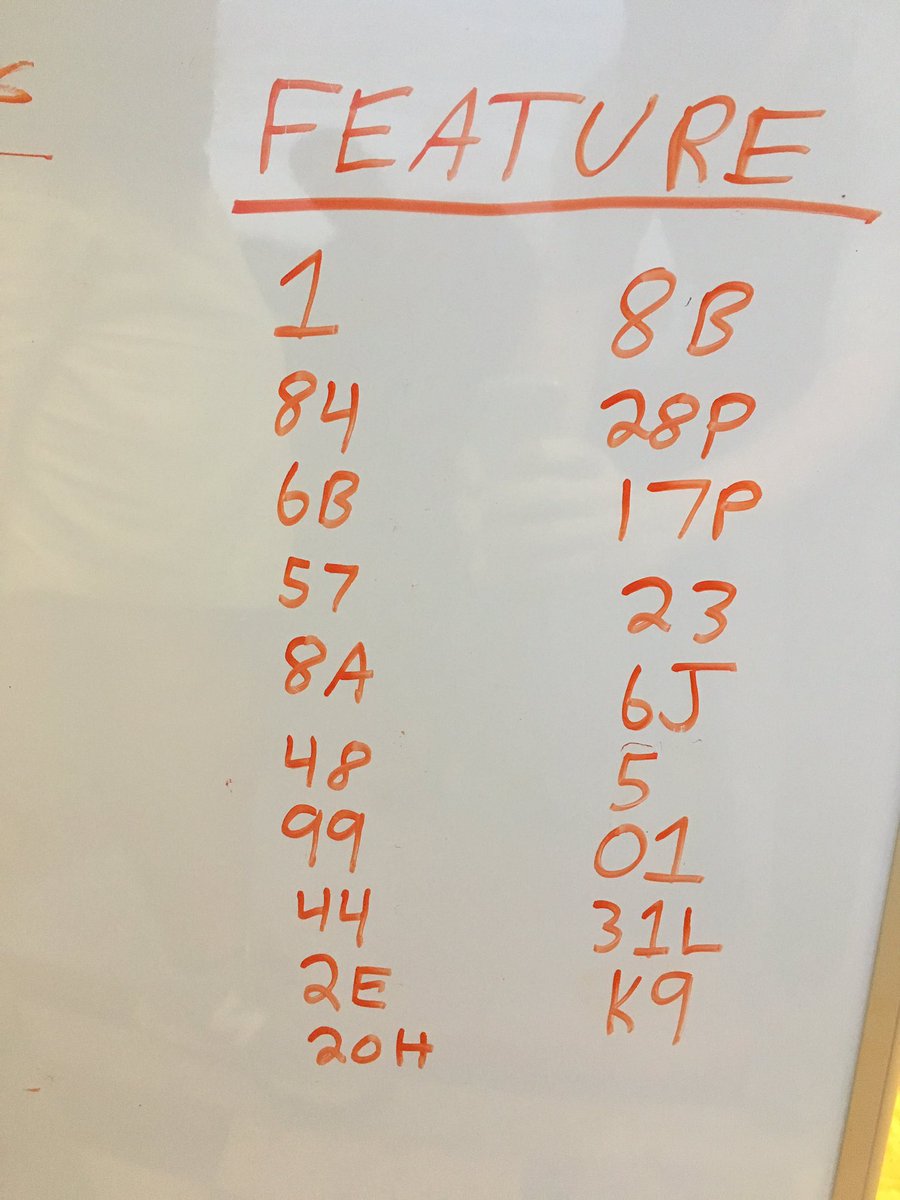 FEATURE
1
84
6B
57
8A
48
99
44
2E
20H
8B
28P
17P
23
6J
5
01
31L
K9